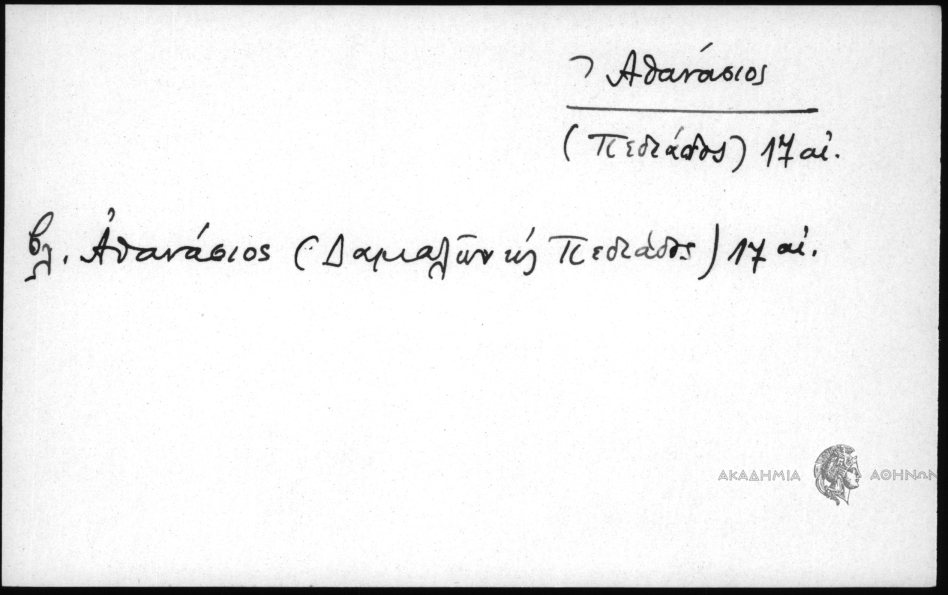 Ἀθανάσιος
(Πεδιάδος) 17 αἰ.
βλ. Ἀθανάσιος (Δαμαλῶν κ̀ Πεδιάδος) 17 αἰ.
ΑΚΑΔΗΜΙΑ ΑΘΗΝΩΝ